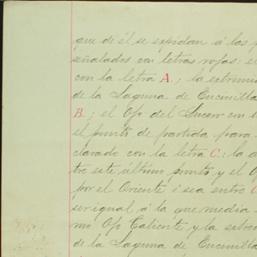 que de él se espidan á los p
señalados con letras rojas: e
con la letra A; la estremi
de la Laguna de Encinilla
B; el Ojo del Sucer con
el punto de partida para
clarado con la letra C; la
tro este ultimo punto y el O
por el Oriente i sea entre
ser igual á la que media
mo Ojo Caliente y la estre
de la Laguna de Encinill